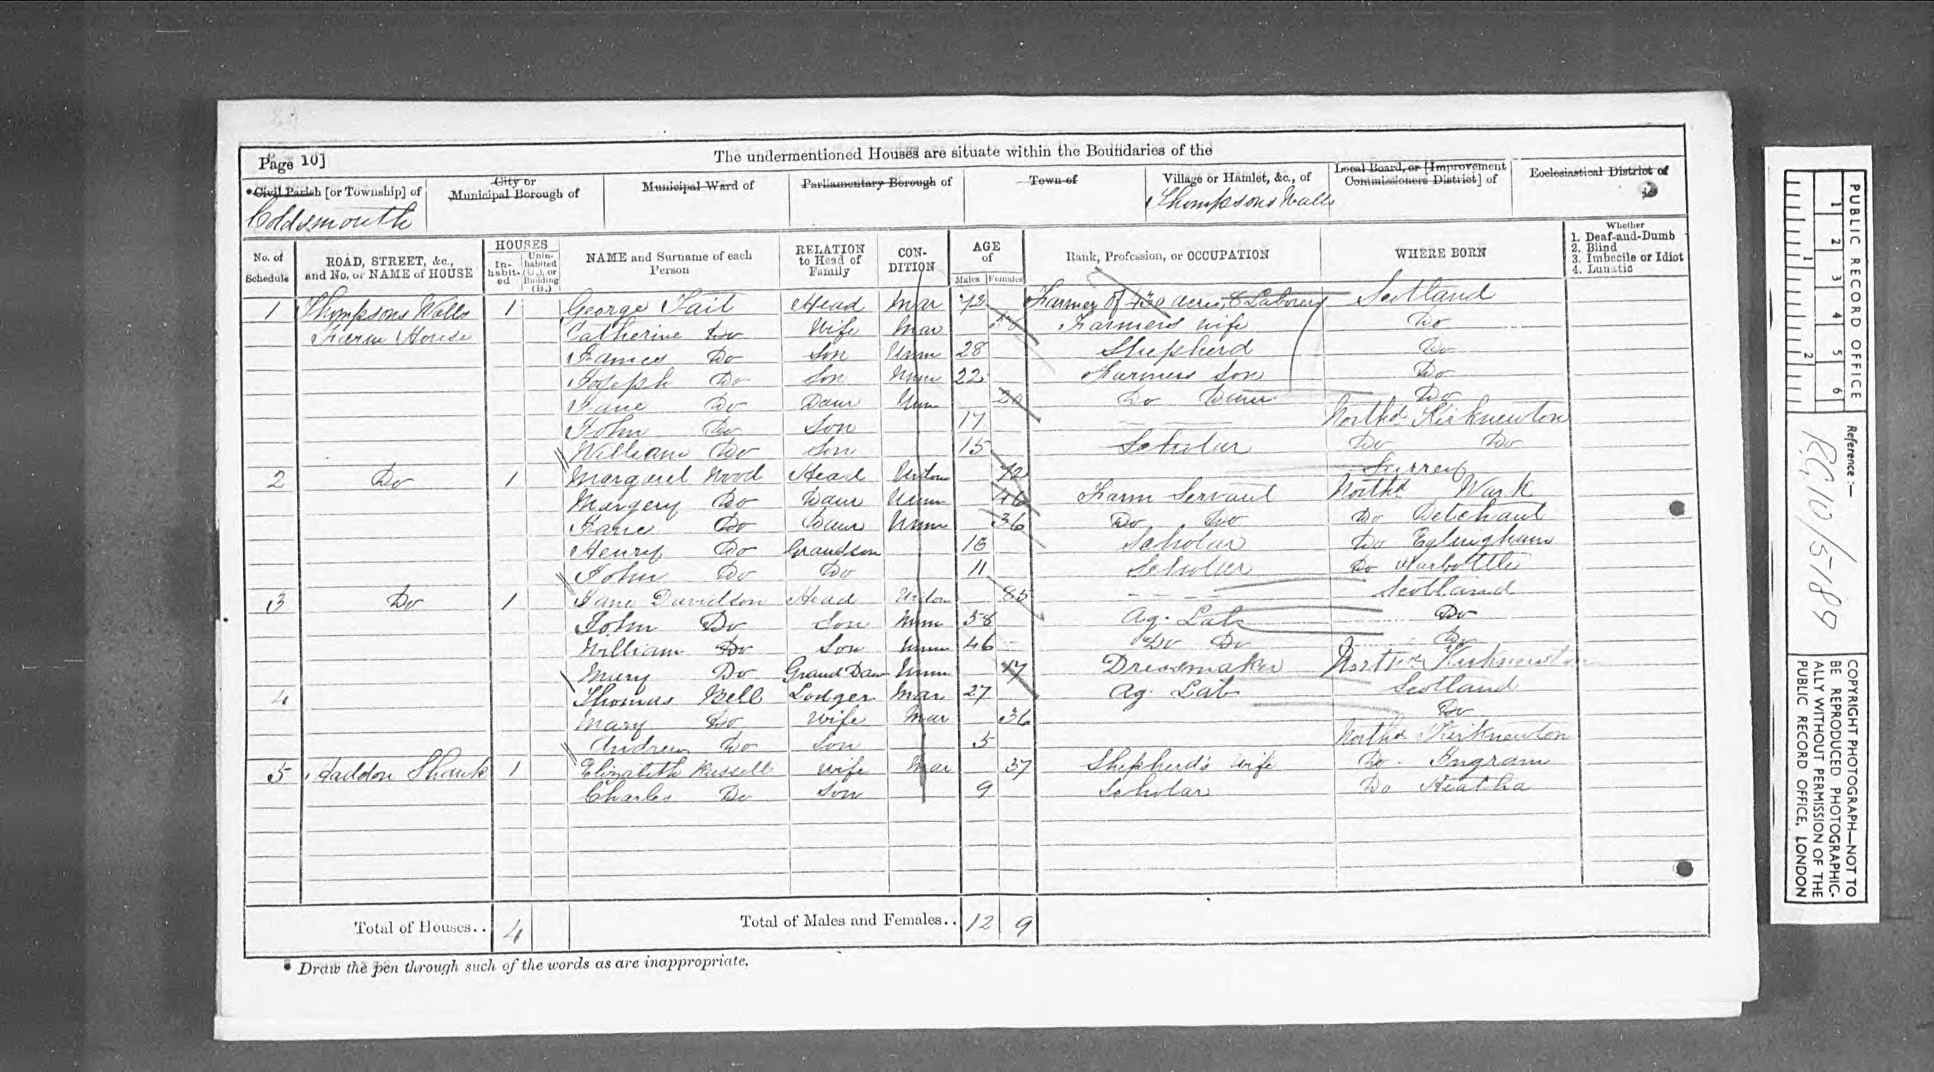 Page 10]
The undermentioned Houses are situate within the Boundaries of the
*Civil Parish [or Township] of
City or Municipal Borough of
Municipal Ward of
Parliamentary Borough of
Town of
Village or Hamlet, &c., of
Local Board, or [Improvement Commissioners District] of
Ecclesiastical District of
Coldsmouth
Thompsons Walls
No. of Schedule
ROAD, STREET, &c., and No. or NAME of HOUSE
HOUSES
Inhabited
Uninhabited (U.), or Building (B.)
NAME and Surname of each Person
RELATION to Head of Family
CONDITION
AGE of
Males
Females
Rank, Profession, or OCCUPATION
WHERE BORN
Whether
1. Deaf-and-Dumb
2. Blind
3. Imbecile or Idiot
4. Lunatic
1 Thompsons Walls 1 George Tait Head Mar 72 Farmer of acres, 8 Labourers Scotland
Farm House Catherine Do Wife Mar Farmers wife Do
James Do Son Unm 28 Shepherd Do
Joseph Do Son Unm 22 Farmers Son Do
Jane Do Daur Unm 20 Do Daur Do
John Do Son 17 Northd Kirknewton
William Do Son 15 Scholar Do Do
2 Do 1 Margaret Wood Head Widow 72 Surrey
Margery Do Daur Unm 46 Farm Servant Northd Wark
Jane Do Daur Unm 36 Do Do Do
Henry Do Grandson 13 Scholar Do Eglingham
John Do Do 11 Scholar Do Harbottle
3 Do 1 Jane Davidson Head Widow 85 Scotland
John Do Son Unm 58 Ag. Lab Do
William Do Son Unm 46 Do Do Do
Mary Do Grand Daur Unm 17 Dressmaker Northd Kirknewton
4 Thomas Bell Lodger Mar 27 Ag. Lab Scotland
Mary Do Wife Mar 36 Do
Andrew Do Son 5 Northd Kirknewton
5 Haddon Shank 1 Elizabeth Russell Wife Mar 37 Shepherd's wife Do. Ingram
Charles Do Son 9 Scholar Do
Total of Houses.. 4
Total of Males and Females.. 12 9
* Draw the pen through such of the words as are inappropriate.
PUBLIC RECORD OFFICE
1 2 3 4 5 6
1 2
Reference :-
RG10/5189
COPYRIGHT PHOTOGRAPH—NOT TO
BE REPRODUCED PHOTOGRAPHIC-
ALLY WITHOUT PERMISSION OF THE
PUBLIC RECORD OFFICE, LONDON